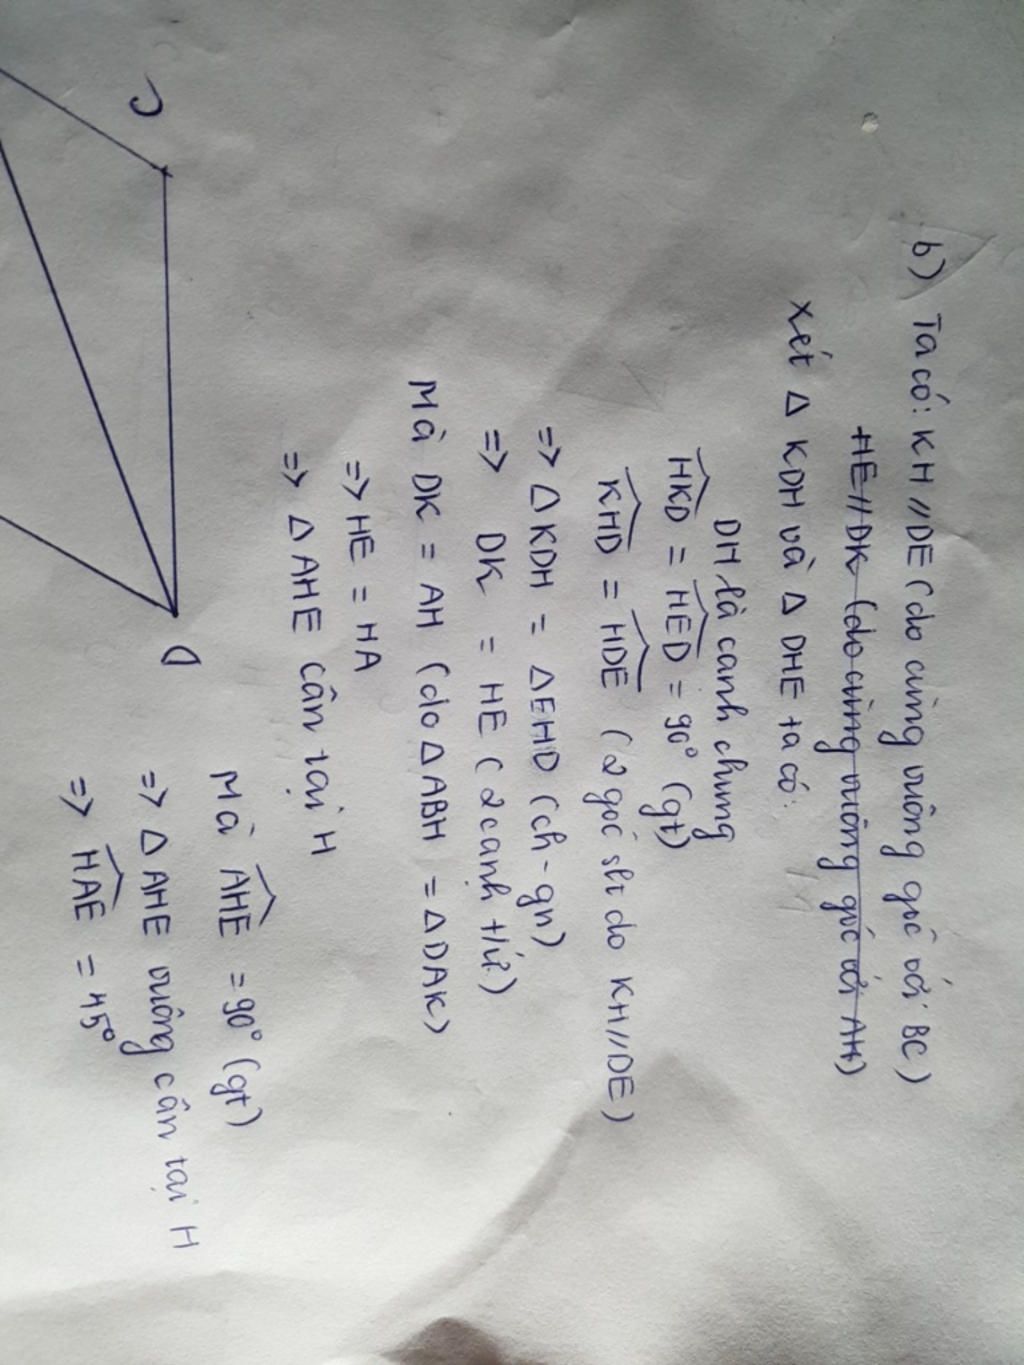 b) Ta có: KH // DE (do cùng vuông góc với BC)
HE // DK (do cùng vuông góc với AH)
Xét Δ KDH và Δ DHE ta có:
DH là cạnh chung
HKD = HED = 90° (gt)
KHD = HDE (2 góc slt do KH // DE)
=> Δ KDH = Δ EHD (ch - gn)
=> DK = HE (2 cạnh t/ứ)
Mà DK = AH (do Δ ABH = Δ DAK)
=> HE = HA
=> Δ AHE cân tại H
Mà AHE = 90° (gt)
=> Δ AHE vuông cân tại H
=> HAE = 45°
C
D